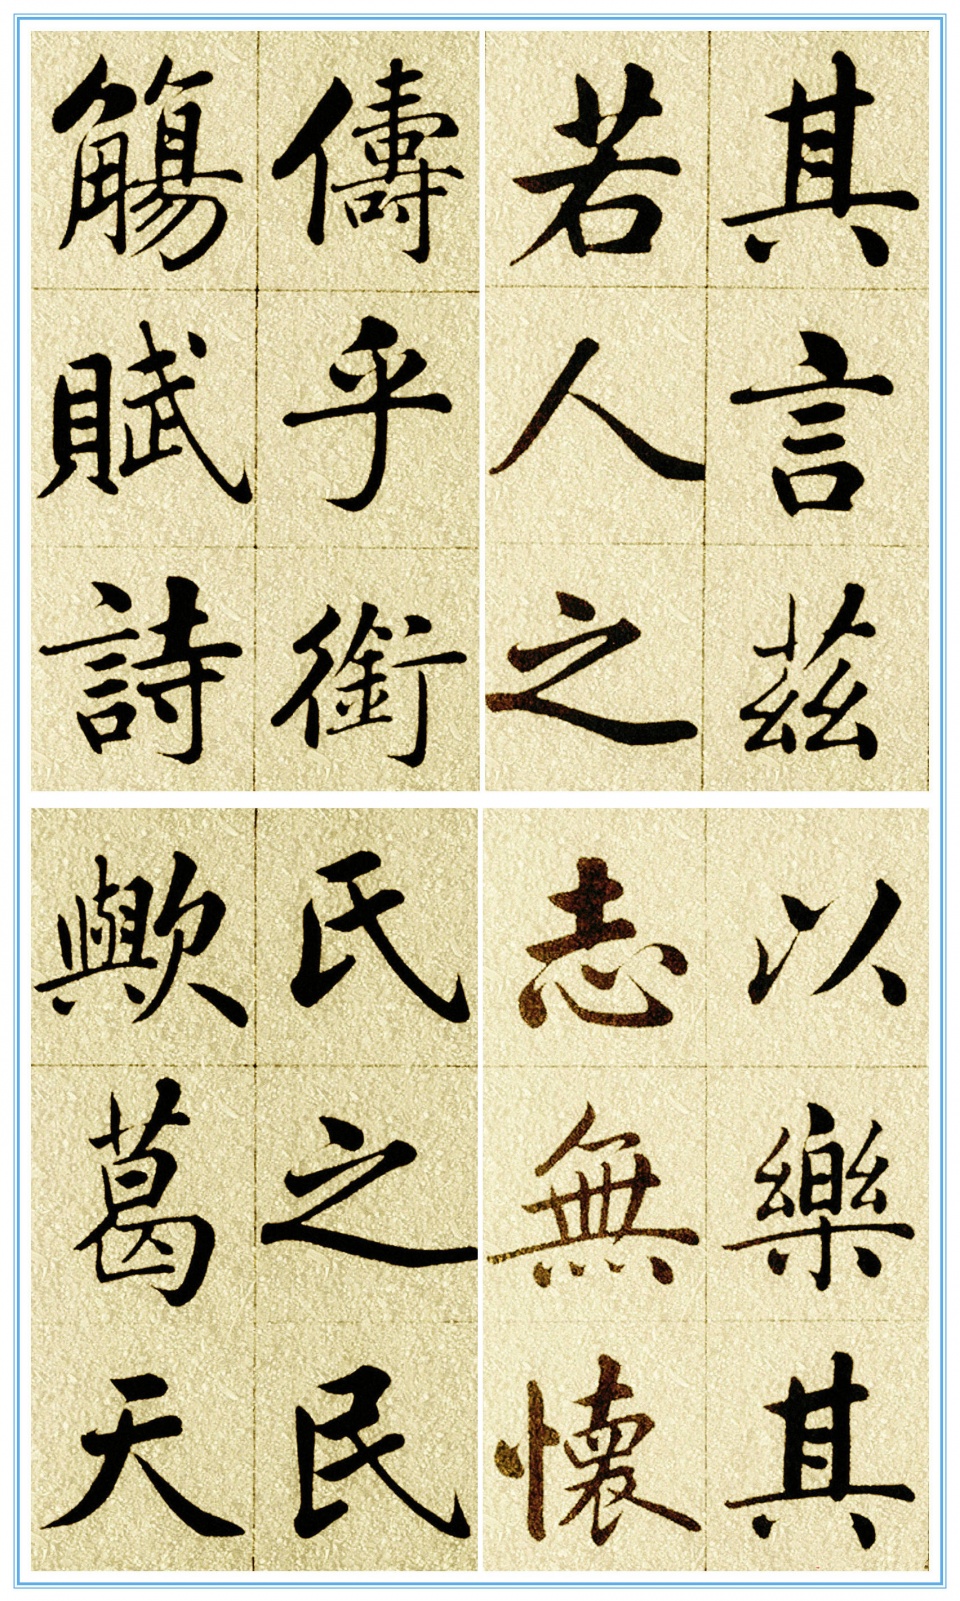 其言茲
若人之
儔乎銜
觴賦詩
以樂其
志無懷
氏之民
歟葛天